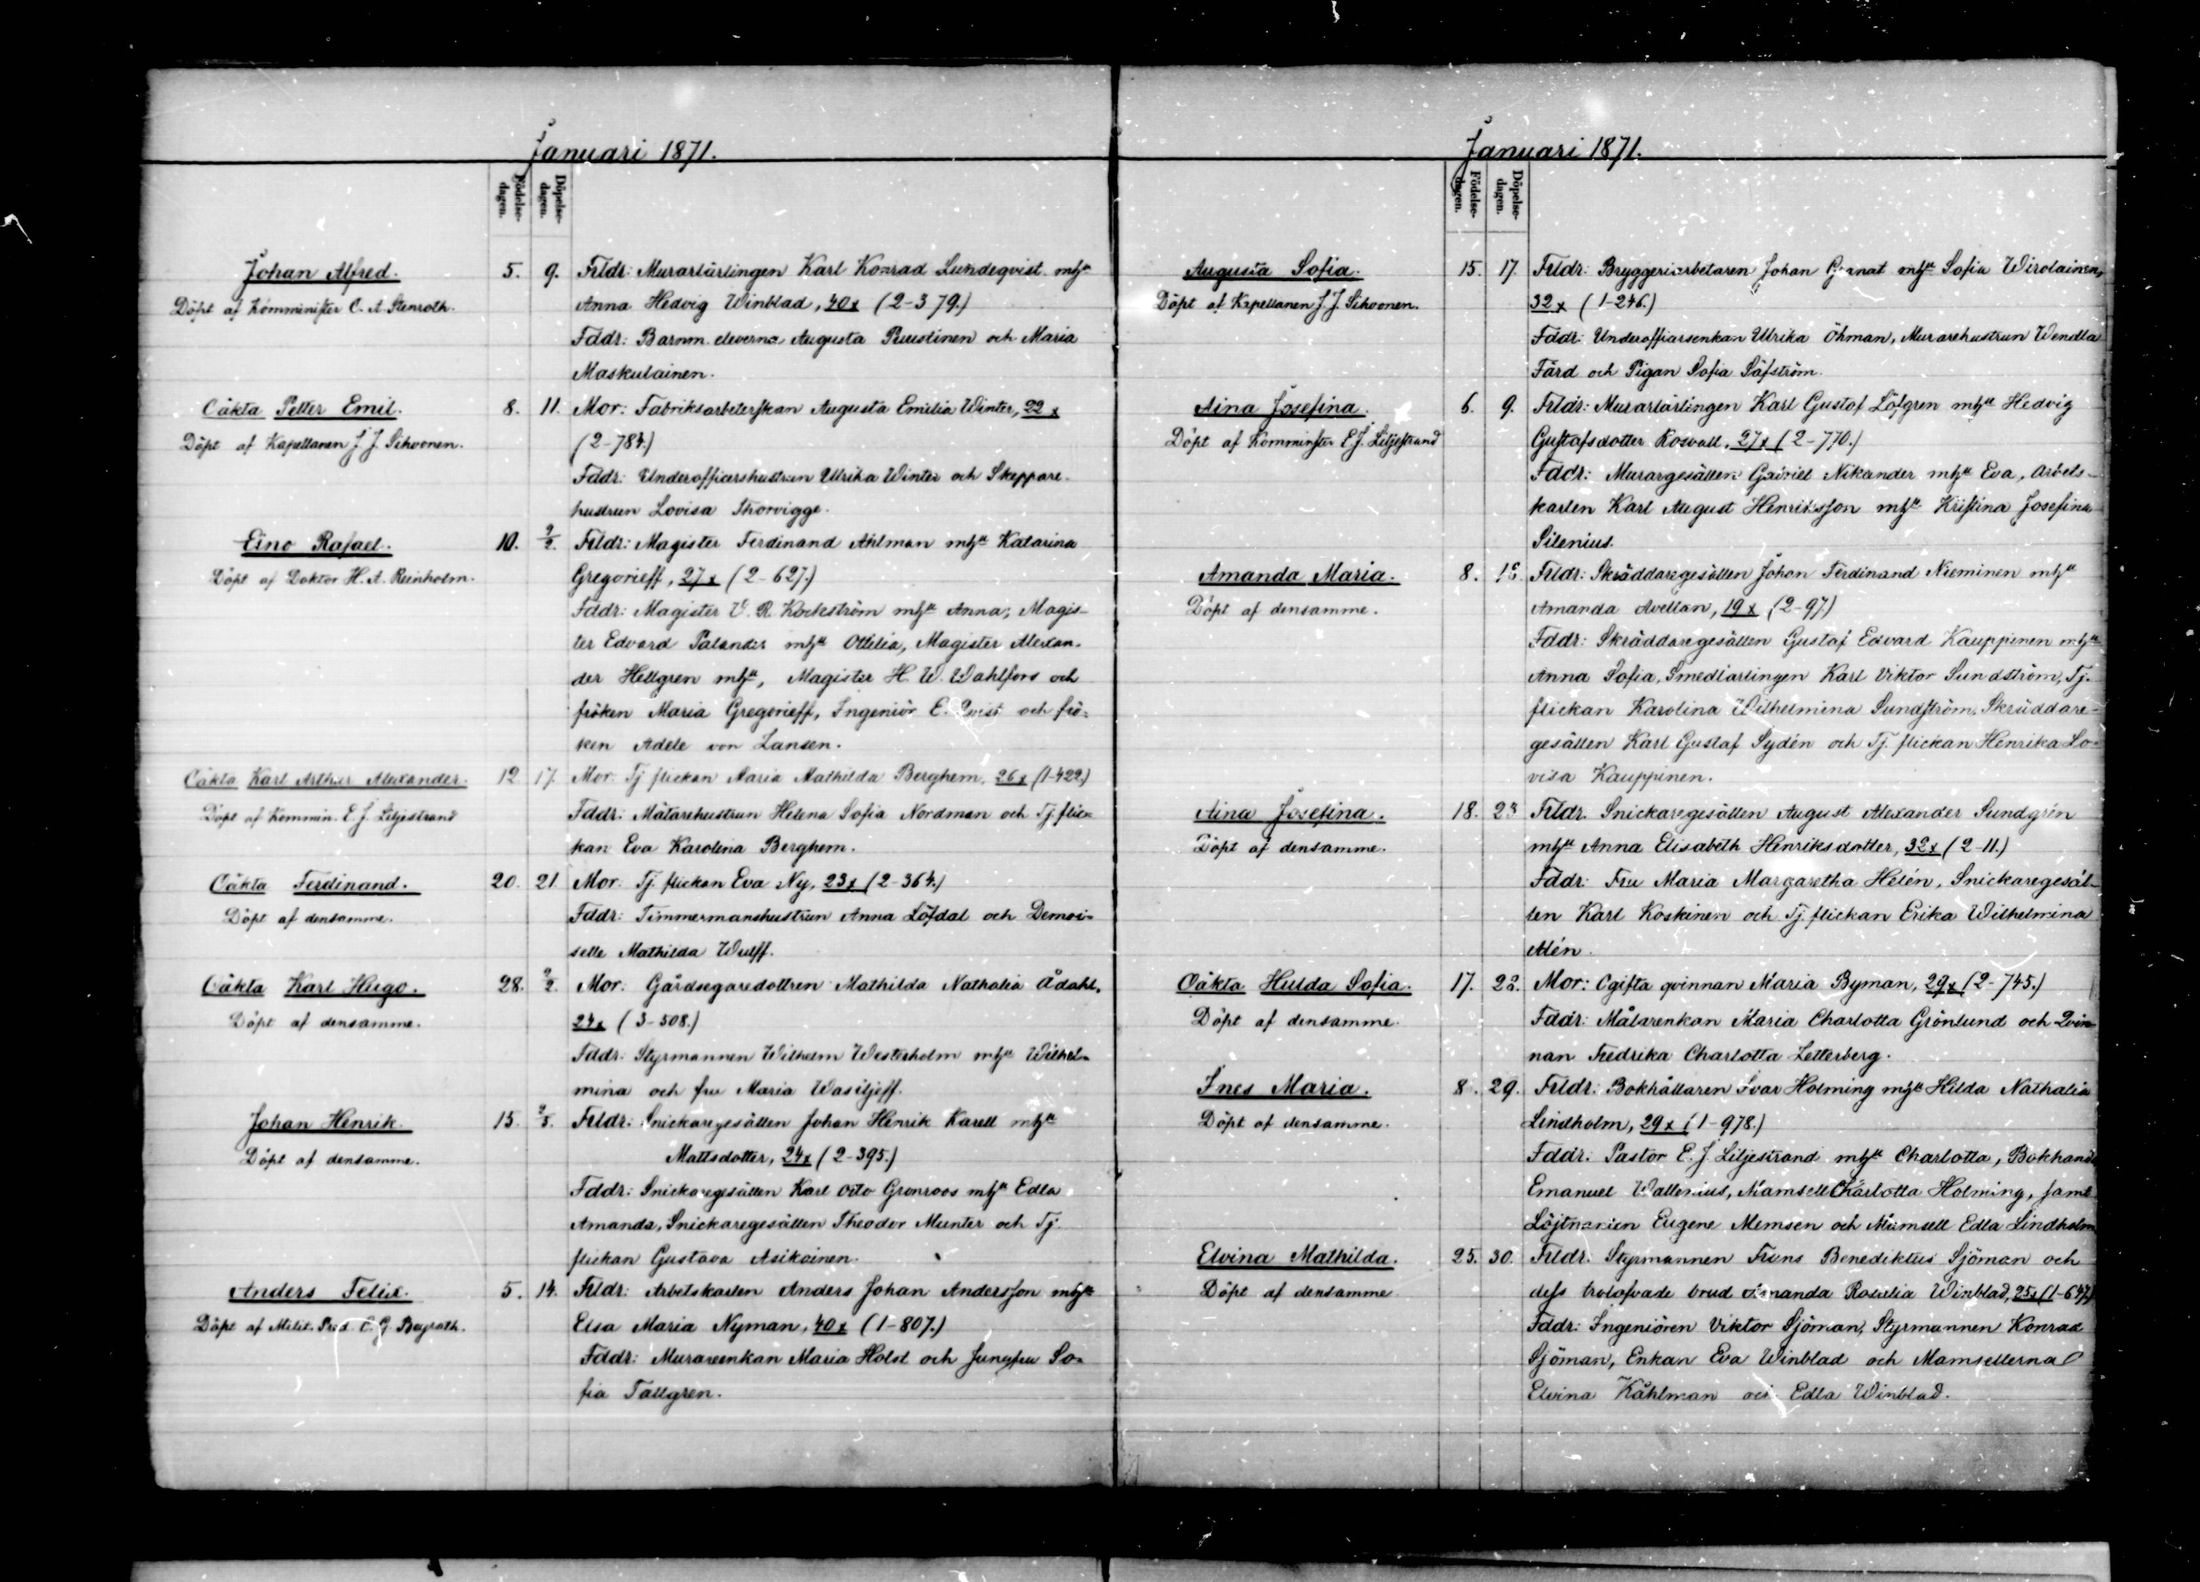 Januari 1871.
Födelse-dagen.
Döpelse-dagen.
Johan Alfred. 5. 9. Frldr: Murarlärlingen Karl Konrad Lundeqvist mhu
Döpt af Komminister C. A. Stenroth. Anna Hedvig Winblad, 40x (2-379.)
Fddr: Barnm. eleverna Augusta Ruustinen och Maria
Maskulainen.
Oäkta Petter Emil. 8. 11. Mor: Fabriksarbeterskan Augusta Emilia Winter, 22x
Döpt af Kapellanen J. J. Sihvonen. (2-784.)
Fddr: Underofficershustrun Ulrika Winter och Skeppare-
hustrun Lovisa Thorvigge.
Eino Rafael. 10. 2/2. Frldr: Magister Ferdinand Ahlman mhu Katarina
Döpt af Doktor H. A. Reinholm. Gregorieff, 27x (2-627.)
Fddr: Magister V. R. Kockström mhu Anna, Magis-
ter Edvard Palander mhu Ottilia, Magister Alexan-
der Hellgren mhu, Magister H. W. Wahlfors och
fröken Maria Gregorieff, Ingeniör E. Qvist och frö-
ken Adele von Jansen.
Oäkta Karl Arthur Alexander. 12. 17. Mor: Tj. flickan Maria Mathilda Berghem, 26x (1-422.)
Döpt af Kommin. E. J. Liljestrand Fddr: Mätarehustrun Helena Sofia Nordman och Tj. flic-
kan Eva Karolina Berghem.
Oäkta Ferdinand. 20. 21. Mor: Tj. flickan Eva Ny, 23x (2-364.)
Döpt af densamme. Fddr: Timmermanshustrun Anna Löfdal och Demoi-
selle Mathilda Wulff.
Oäkta Karl Hugo. 28. 2/2. Mor: Gårdsegaredottren Mathilda Nathalia Ådahl,
Döpt af densamme. 24x (3-508.)
Fddr: Styrmannen Wilhelm Westerholm mhu Wilhel-
mina och fru Maria Wasiljeff.
Johan Henrik. 15. 2/3. Frldr: Snickaregesällen Johan Henrik Karell mhu
Döpt af densamme. Mattsdotter, 24x (2-395.)
Fddr: Snickaregesällen Karl Otto Grönroos mhu Edla
Amanda, Snickaregesällen Theodor Munter och Tj.
flickan Gustava Asikainen.
Anders Felix. 5. 14. Frldr: Arbetskarlen Anders Johan Andersson mhu
Döpt af Milit. Pred. C. G. Beyrath. Elsa Maria Nyman, 40x (1-807.)
Fddr: Murareenkan Maria Holst och Jungfru So-
fia Tallgren.
Januari 1871.
Födelse-dagen.
Döpelse-dagen.
Augusta Sofia. 15. 17. Frldr: Bryggeriarbetaren Johan Granat mhu Sofia Wirolainen,
Döpt af Kapellanen J. J. Sihvonen. 32x (1-246.)
Fddr: Underofficersenkan Ulrika Öhman, Murarehustrun Wendla
Färd och Pigan Sofia Säfström.
Aina Josefina. 6. 9. Frldr: Murarlärlingen Karl Gustaf Löfgren mhu Hedvig
Döpt af Komminister E. J. Liljestrand Gustafsdotter Rosvall, 27x (2-770.)
Fddr: Murargesällen Gabriel Nikander mhu Eva, Arbets-
karlen Karl August Henriksson mhu Kristina Josefina
Silenius.
Amanda Maria. 8. Frldr: Skräddaregesällen Johan Ferdinand Nieminen mhu
Döpt af densamme. Amanda Avellan, 19x (2-97)
Fddr: Skräddaregesällen Gustaf Edvard Kauppinen mhu
Anna Sofia, Smedlärlingen Karl Viktor Sundström, Tj.
flickan Karolina Wilhelmina Sundström, Skräddare-
gesällen Karl Gustaf Sydén och Tj. flickan Henrika Lo-
visa Kauppinen.
Aina Josefina. 18. 23. Frldr. Snickaregesällen August Alexander Sundgrén
Döpt af densamme. mhu Anna Elisabeth Henriksdotter, 32x (2-11.)
Fddr: Fru Maria Margaretha Helén, Snickaregesäl-
len Karl Koskinen och Tj. flickan Erika Wilhelmina
Alén.
Oäkta Hulda Sofia. 17. 22. Mor: Ogifta qvinnan Maria Byman, 29x (2-745.)
Döpt af densamme. Fddr: Målarenkan Maria Charlotta Grönlund och Qvin-
nan Fredrika Charlotta Zetterberg.
Ines Maria. 8. 29. Frldr: Bokhållaren Ivar Holming mhu Hilda Nathalia
Döpt af densamme. Lindholm, 29x (1-978.)
Fddr: Pastor E. J. Liljestrand mhu Charlotta, Bokhand.
Emanuel Wallenius, Mamsell Charlotta Holming, samt
Löjtnanten Eugene Memsen och Mamsell Edla Lindholm
Elvina Mathilda. 25. 30. Frldr: Styrmannen Frans Benediktus Sjöman och
Döpt af densamme dess trolofvade brud Amanda Rosalia Winblad, 25x (1-647)
Fddr: Ingeniören Viktor Sjöman, Styrmannen Konrad
Sjöman, Enkan Eva Winblad och Mamsellerna
Elvina Kåhlman och Edla Winblad.